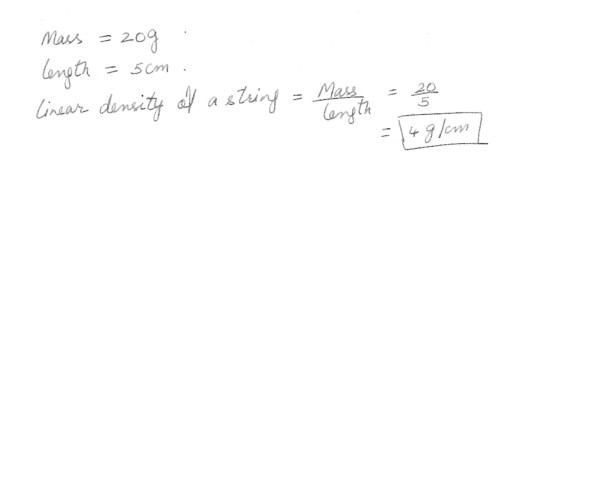 Mass = 20g
length = 5cm.
linear density of a string = Mass/length = 20/5
= 4 g/cm